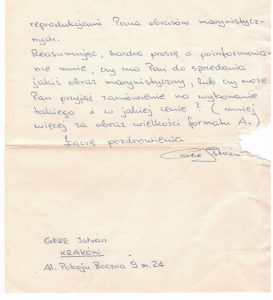 reprodukcjami Pana obrazów marynistycz-
nych.
Reasumując, bardzo proszę o poinformowa-
nie mnie, czy ma Pan do sprzedania
jakiś obraz marynistyczny, lub czy może
Pan przyjąć zamówienie na wykonanie
takiego i w jakiej cenie? (mniej
więcej za obraz wielkości formatu A1)
Łączę pozdrowienia
GERE Istvan
KRAKÓW
Al. Pokoju Boczna 9 m. 24